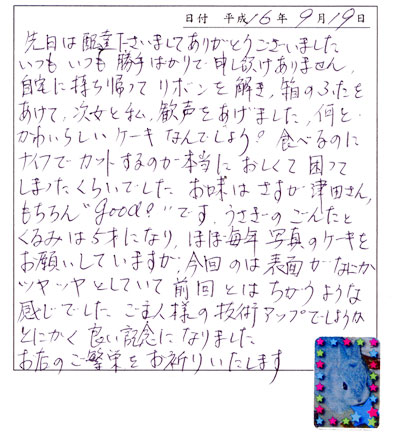 日付 平成16年9月19日
先日は配達ださいましてありがとうございました
いつも いつも 勝手ばかりで申し訳けありません。
自宅に持ち帰って リボンを解き、箱のふたを
あけて、次女と私、歓声をあげました。何と
かわいらしいケーキ なんでしょう？ 食べるのに
ナイフでカットするのが本当に おしくて 困って
しまったくらいでした。お味は さすが 津田さん、
もちろん“good!”です。うさぎーの ごんたと
くるみは5才になり、ほぼ毎年 写真のケーキを
お願いしていますが、今回 のは 表面 が なにか
ツヤッヤとしていて 前回 とは ちがう ような
感じでした。ご主人様の技術アップでしょうか
とにかく 良い記念になりました
お店のご繁栄を お祈りいたします